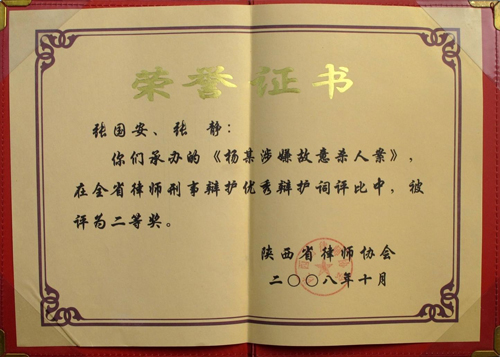 荣誉证书
张国安、张 静：
你们承办的《杨某涉嫌故意杀人案》，
在全省律师刑事辩护优秀辩护词评比中，被
评为二等奖。
陕西省律师协会
二〇〇八年十月